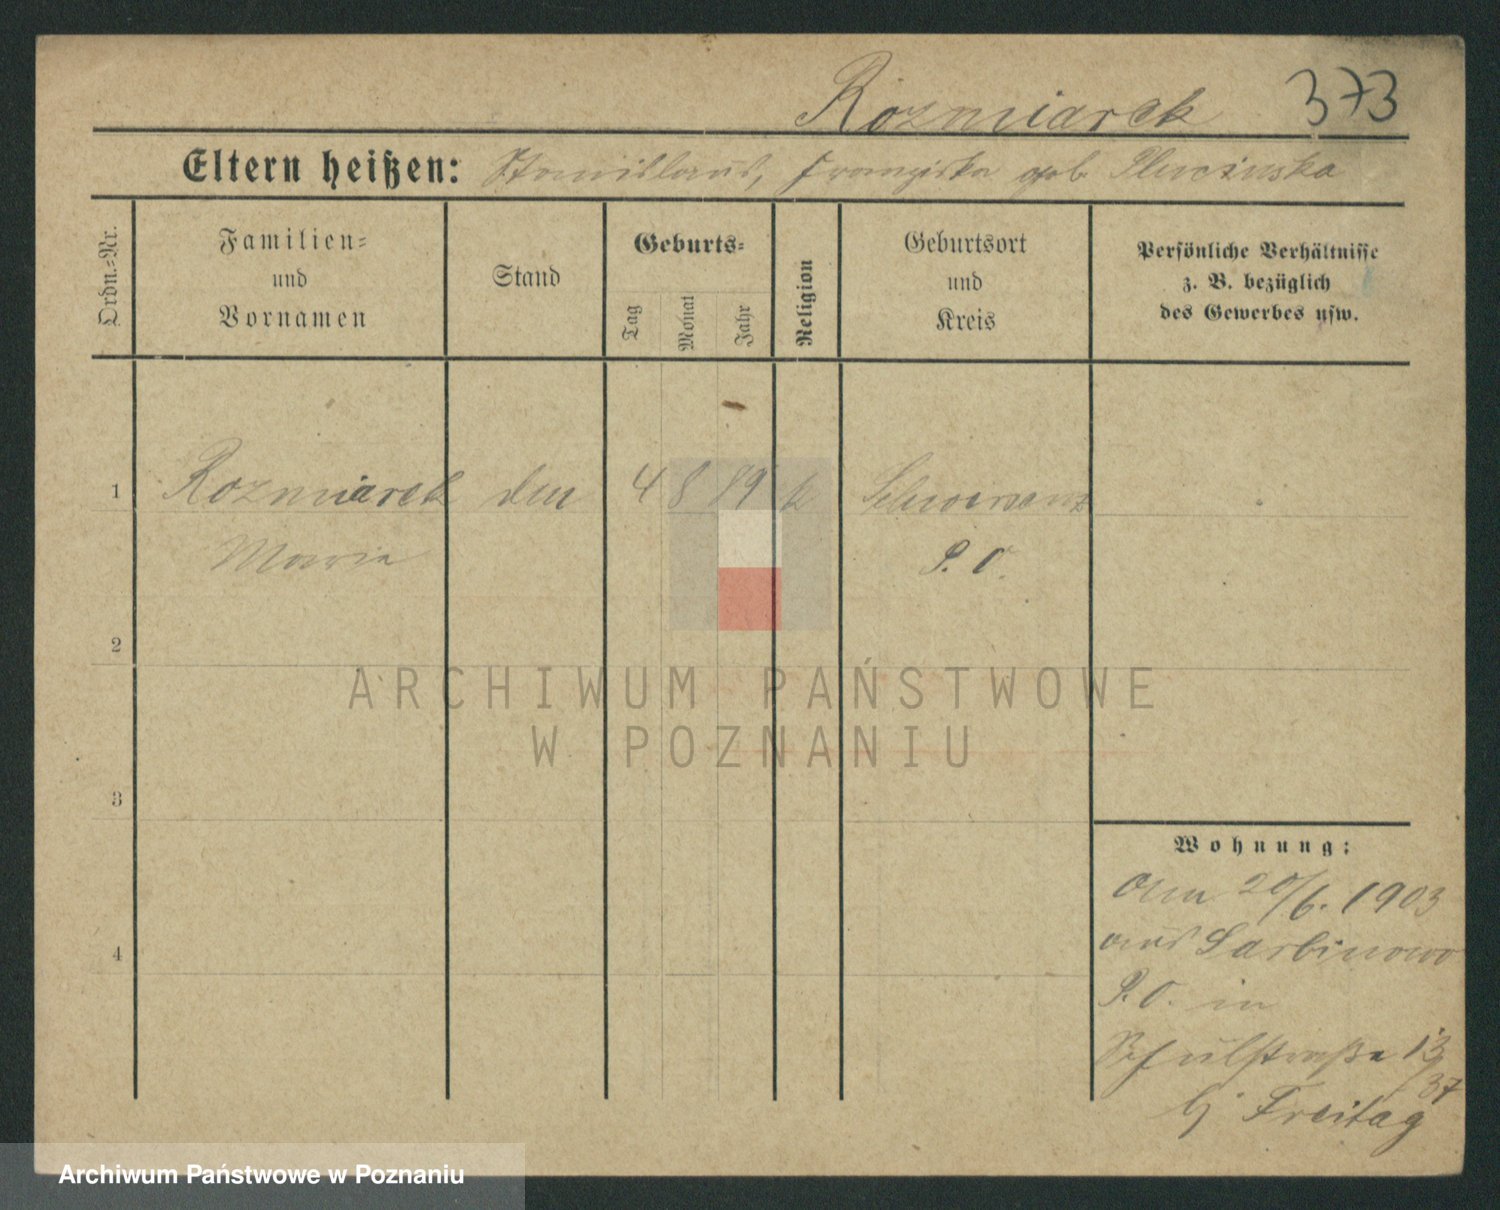 Rozmiarek 373
Eltern heißen: Stanislaus, Franziska geb. Plucinska
Ordn.-Nr.
Familien-
und
Vornamen
Stand
Geburts-
Tag
Monat
Jahr
Religion
Geburtsort
und
Kreis
Persönliche Verhältnisse
z. B. bezüglich
des Gewerbes usw.
1 Rozmiarek den 4 8 89 k Schwersenz
Marie P. O.
2
ARCHIWUM PAŃSTWOWE
W POZNANIU
3
Wohnung:
Am 20/6. 1903
aus Sarbinowo
4
P. O. in
Schulstraße 13
37
bj Freitag
Archiwum Państwowe w Poznaniu